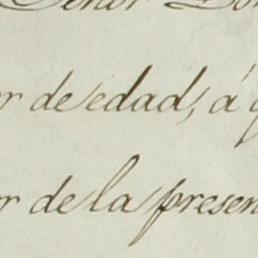 Señor Don
or de edad, á
or de la presen